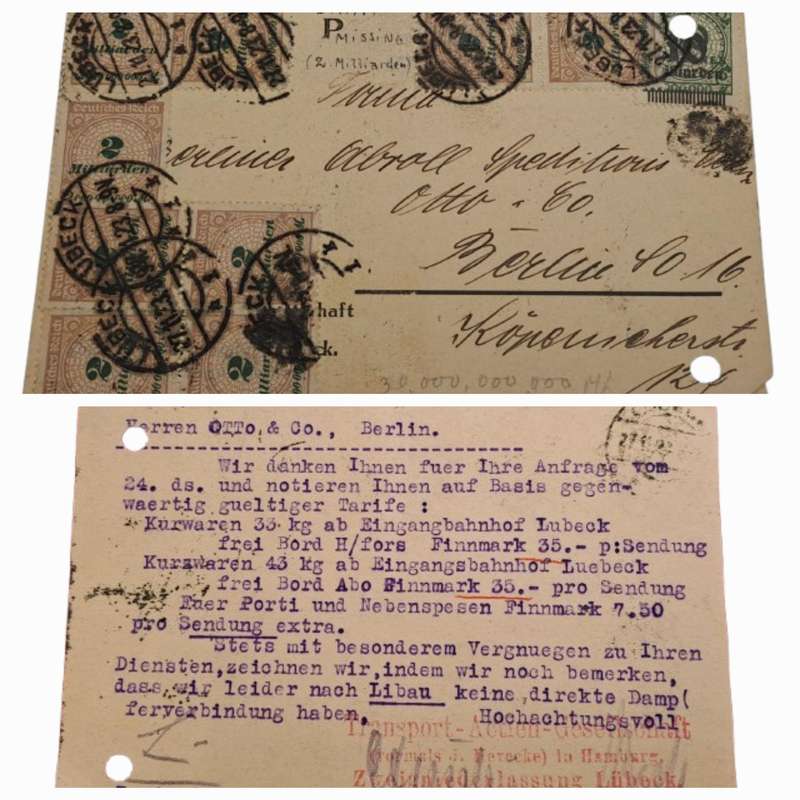 2 Milliarden
LÜBECK
27.11.23.8-9N
P
MISSING
(2. Milliarden)
Firma
Berliner Abroll Speditions
Otto & Co.
Berlin SO 16.
Köpenickerstr.
Deutsches Reich
2
Milliarden
LÜBECK
2
Milliarden
2
2
Milliarden
haft
ck.
30,000,000,000 Mk
Herren OTTo & Co., Berlin.
Wir danken Ihnen fuer Ihre Anfrage vom
24. ds. und notieren Ihnen auf Basis gegen-
waertig gueltiger Tarife :
Kurwaren 33 kg ab Eingangbahnhof Lubeck
frei Bord H/fors Finnmark 35.- p:Sendung
Kurzwaren 43 kg ab Eingangsbahnhof Luebeck
frei Bord Abo Finnmark 35.- pro Sendung
Fuer Porti und Nebenspesen Finnmark 7.50
pro Sendung extra.
Stets mit besonderem Vergnuegen zu Ihren
Diensten,zeichnen wir,indem wir noch bemerken,
dass wir leider nach Libau keine,direkte Damp(
ferverbindung haben. Hochachtungsvoll
Transport-Actien-Gesellschaft
(vormals J. Hevecke) in Hamburg,
Zweigniederlassung Lübeck.